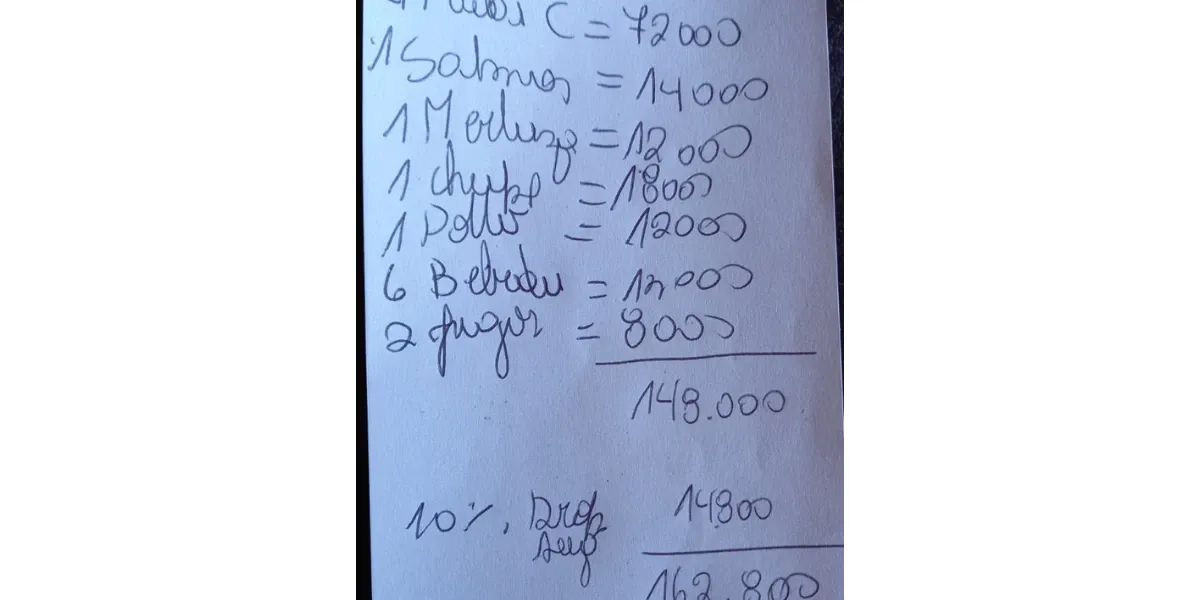 C = 72000
1 Salmon = 14000
1 Merluza = 12000
1 chupe = 18000
1 Pollo = 12000
6 Bebidas = 12000
2 jugos = 8000
148.000
10%. Prop 14800
Sug
162.800